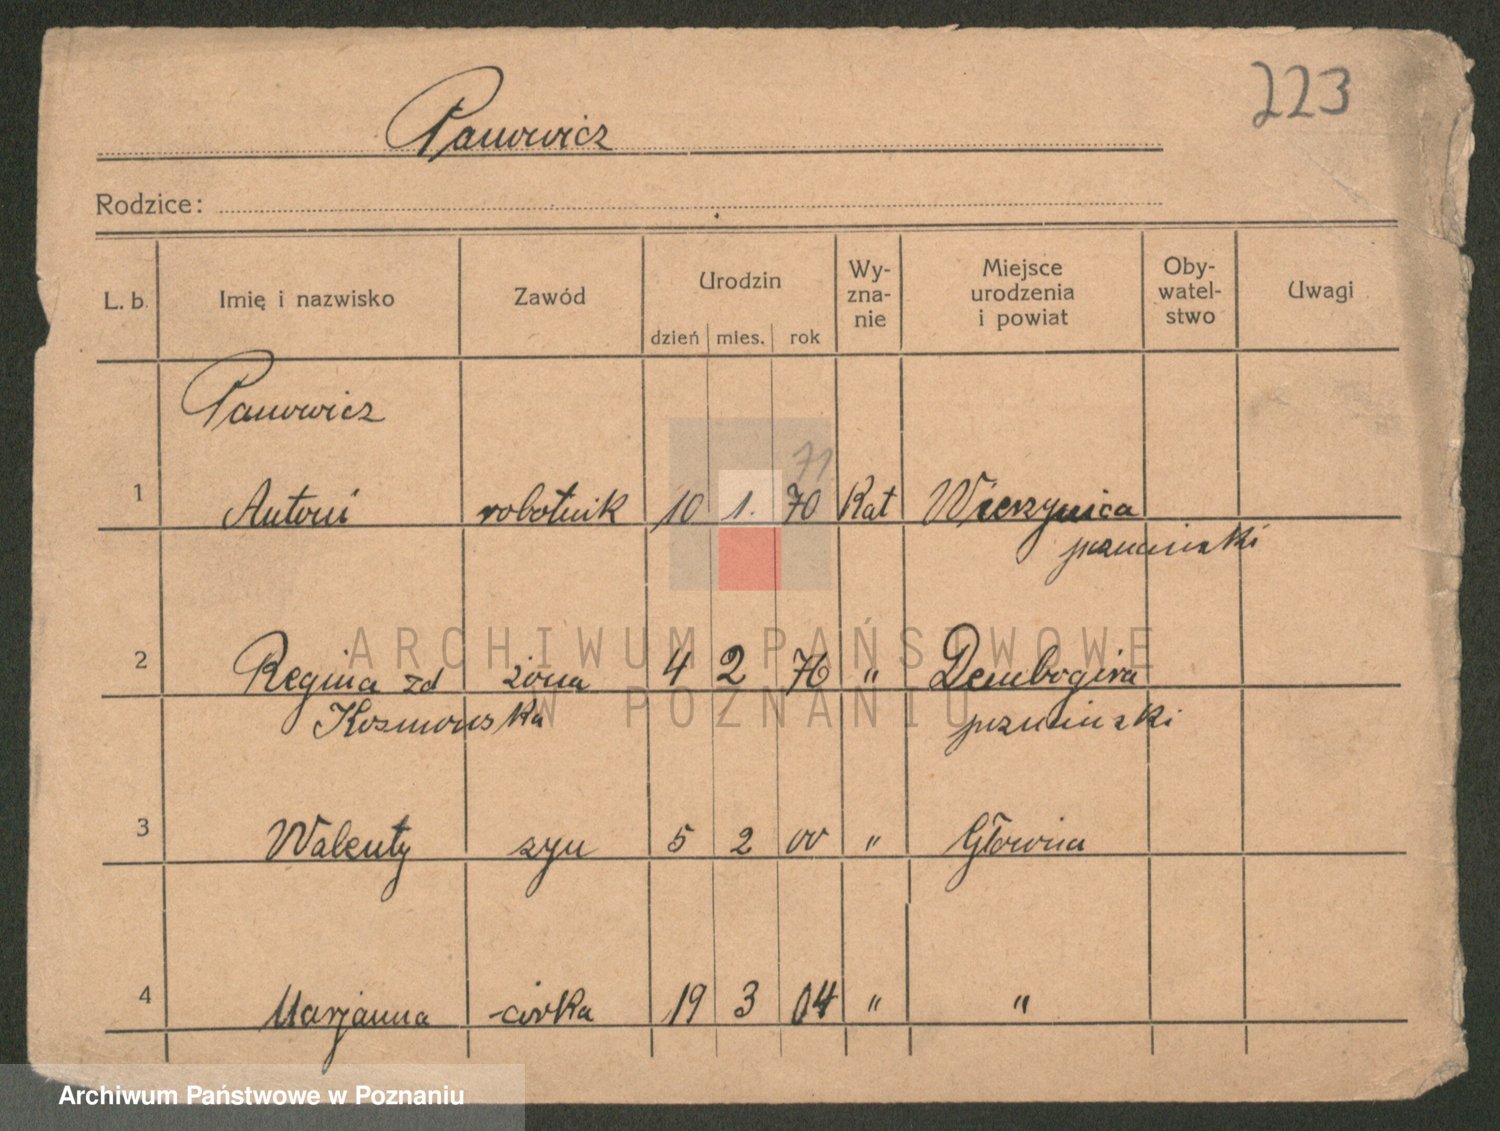 223
Panowicz
Rodzice:
L. b. Imię i nazwisko Zawód Urodzin Wy-zna-nie Miejsce urodzenia i powiat Oby-watel-stwo Uwagi
dzień mies. rok
Panowicz
71
1 Antoni robotnik 10 1. 70 Kat Wierzynica
poznański
2 Regina zd żona 4 2 76 " Dembogóra
Kozmowska poznański
3 Walenty syn 5 2 00 " Główna
4 Marjanna córka 19 3 04 " "
ARCHIWUM PAŃSTWOWE
W POZNANIU
Archiwum Państwowe w Poznaniu